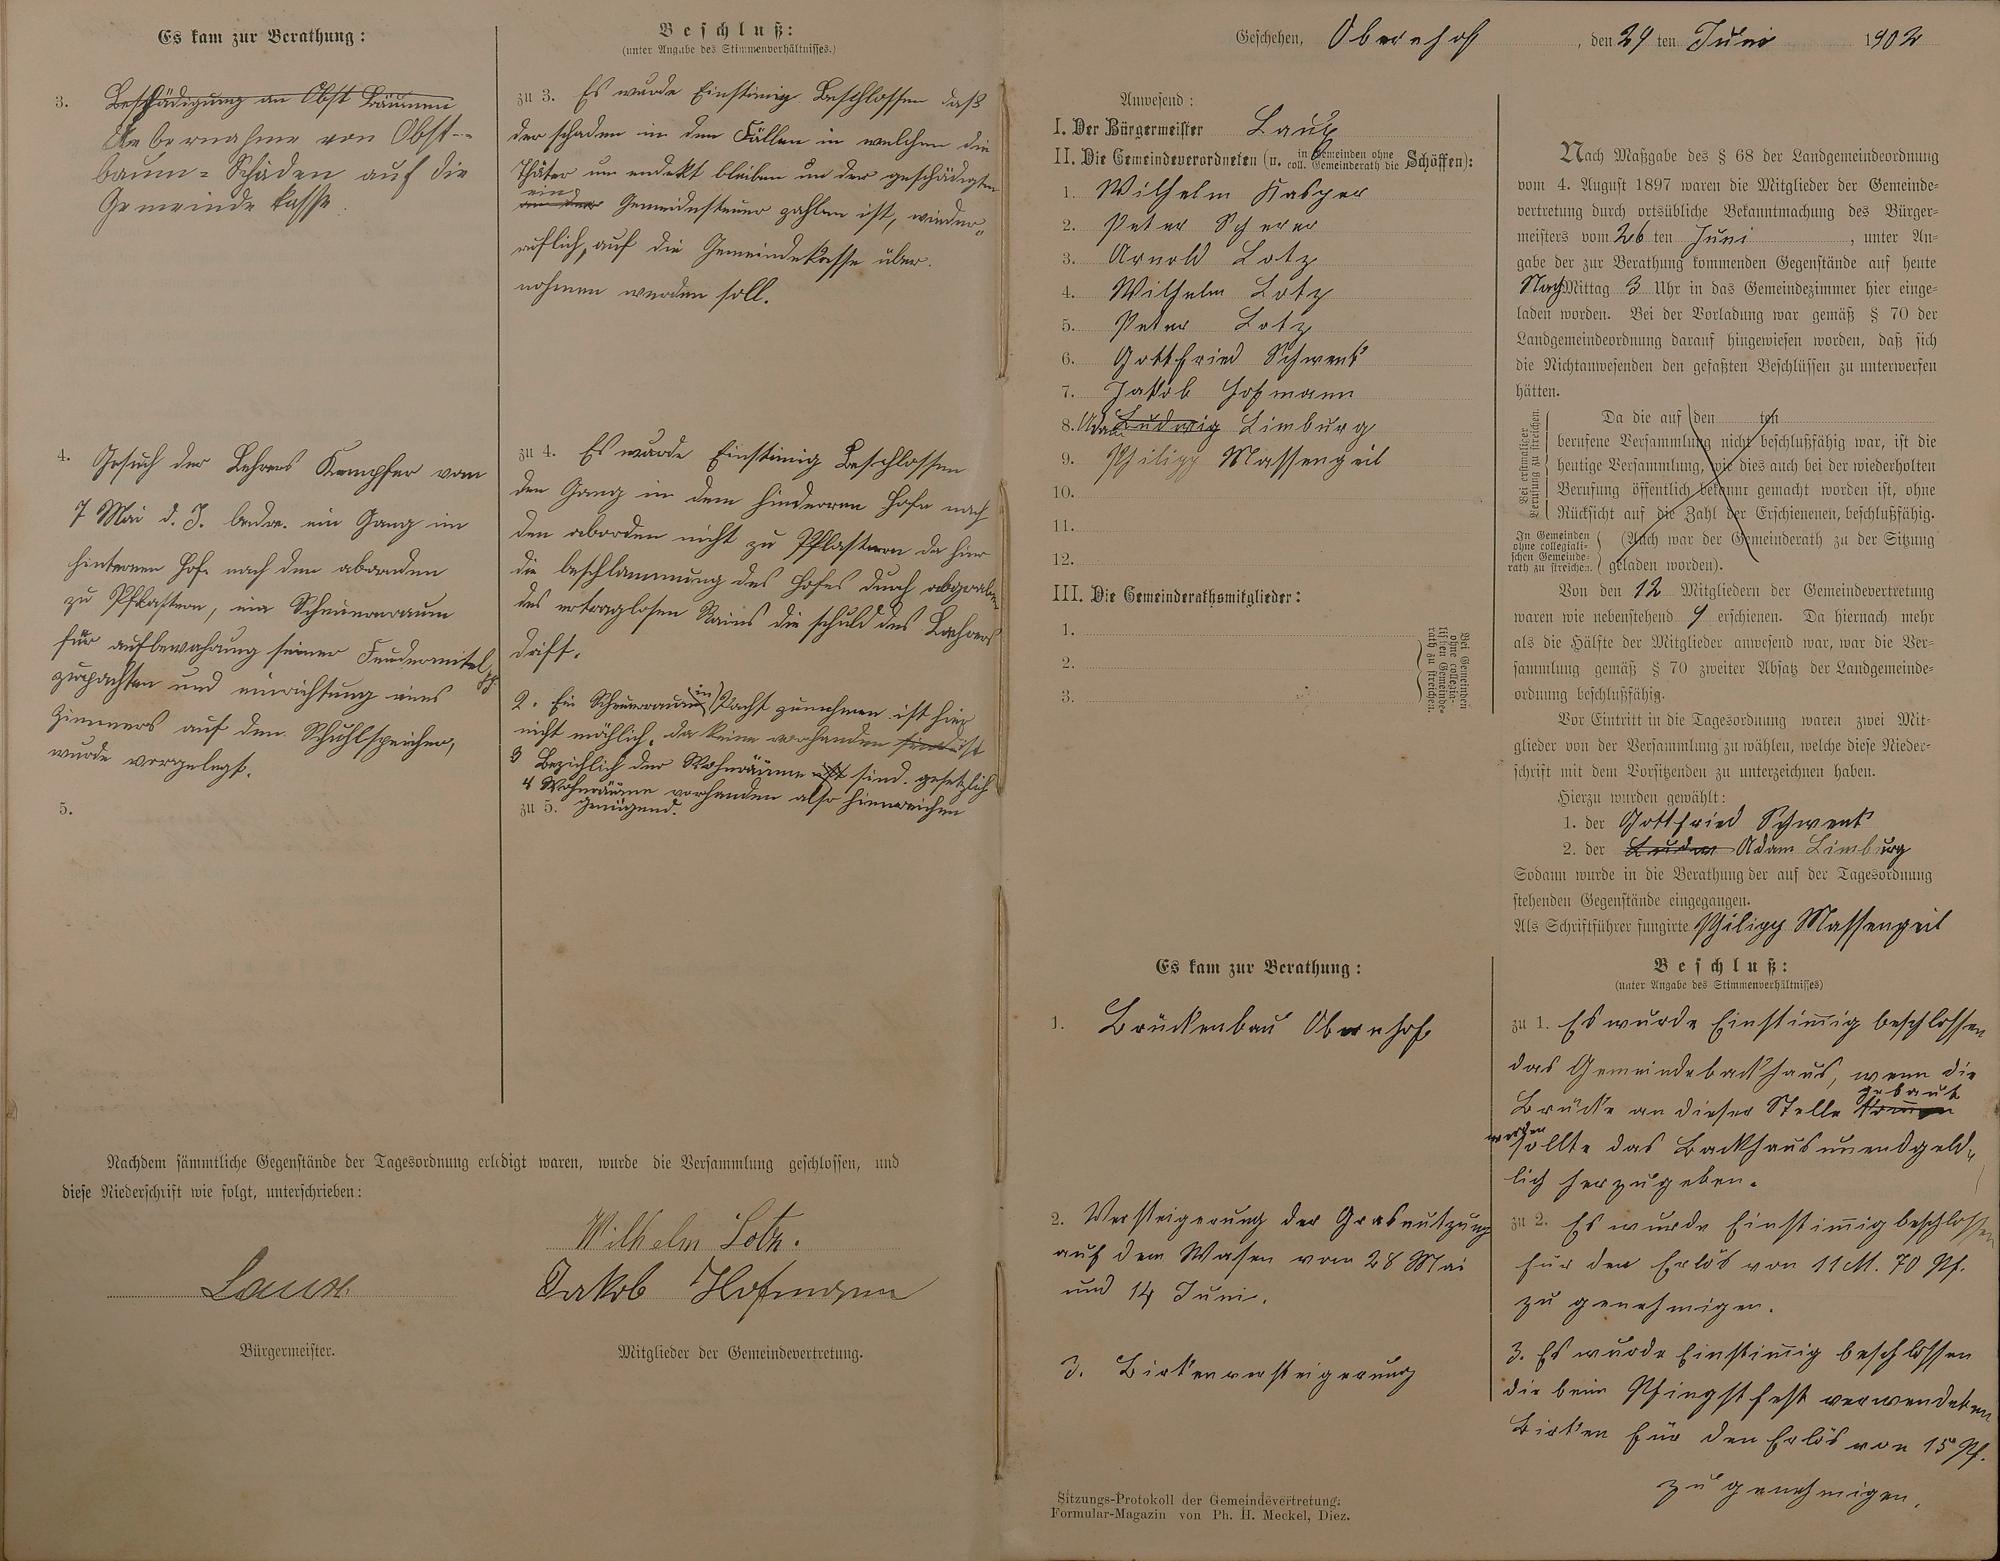 Es kam zur Berathung:
3. Beschädigung an Obst Bäumen
Uebernahme von Obst-
baum-Schäden auf die
Gemeinde kasse.
4. Gesuch des Lehrers Kempfer vom
7 Mai d. J. betr. ein Gang im
hinteren Hof nach den aborden
zu Pflastern, ein Scheunenraum
für aufbewahrung seiner Feudermitel
zupachten und einrichtung eines
Zimmers auf den Schuhlspeicher,
wurde vorgelegt.
5.
Beschluß:
(unter Angabe des Stimmenverhältnisses.)
zu 3. Es wurde Einstimig Beschlossen daß
der schaden in den Fällen in welchen die
Thäter un endekt bleiben un der geschädigte
ein
Gemeidesteuer zahler ist, wieder-
ruflich, auf die Gemeindekasse über-
nohmen werden soll.
zu 4. Es wurde Einstimig Beschlossen
den Gang in dem hinderen Hofe nach
den aborden nicht zu Pflastern da hier
die beschlammung des Hofes durch abgraben
des ertraglosen Rains die schuld des Lehrers
driff.
2. Ein Scheuerraum in Pacht zunehmen ist hier
nicht möhlich, da keine vorhanden sind ist
3 Bezichlich der Wohnräume ist sind. gesetzlich
4 Wohnräume vorhanden also hienreichen
zu 5. genügend.
Nachdem sämmtliche Gegenstände der Tagesordnung erledigt waren, wurde die Versammlung geschlossen, und
diese Niederschrift wie folgt, unterschrieben:
Wilhelm Lotz.
Laux
Jakob Hofmann
Bürgermeister.
Mitglieder der Gemeindevertretung.
Geschehen, Obernhof, den 29 ten Juni 1902
Anwesend:
I. Der Bürgermeister Laux
II. Die Gemeindeverordneten (u. in Gemeinden ohne coll. Gemeinderath die Schöffen):
1. Wilhelm Kasper
2. Peter Scherer
3. Arnold Lotz
4. Wilhelm Lotz
5. Peter Lotz
6. Gottfried Schwenk
7. Jakob Hofmann
8. Adam Ludwig Limburg
9. Philipp Massengeil
10.
11.
12.
III. Die Gemeinderathsmitglieder:
1.
2.
3.
Bei Gemeinden
ohne collegia-
lischen Gemeinde-
rath zu streichen.
Nach Maßgabe des § 68 der Landgemeindeordnung
vom 4. August 1897 waren die Mitglieder der Gemeinde-
vertretung durch ortsübliche Bekanntmachung des Bürger-
meisters vom 26 ten Juni, unter An-
gabe der zur Berathung kommenden Gegenstände auf heute
Nach Mittag 3 Uhr in das Gemeindezimmer hier einge-
laden worden. Bei der Vorladung war gemäß § 70 der
Landgemeindeordnung darauf hingewiesen worden, daß sich
die Nichtanwesenden den gefaßten Beschlüssen zu unterwerfen
hätten.
Bei erstmaliger
Berufung zu streichen.
Da die auf den ten
berufene Versammlung nicht beschlußfähig war, ist die
heutige Versammlung, wie dies auch bei der wiederholten
Berufung öffentlich bekannt gemacht worden ist, ohne
Rücksicht auf die Zahl der Erschienenen, beschlußfähig.
In Gemeinden
ohne collegiali-
schen Gemeinde-
rath zu streichen.
(Auch war der Gemeinderath zu der Sitzung
geladen worden).
Von den 12 Mitgliedern der Gemeindevertretung
waren wie nebenstehend 9 erschienen. Da hiernach mehr
als die Hälfte der Mitglieder anwesend war, war die Ver-
sammlung gemäß § 70 zweiter Absatz der Landgemeinde-
ordnung beschlußfähig.
Vor Eintritt in die Tagesordnung waren zwei Mit-
glieder von der Versammlung zu wählen, welche diese Nieder-
schrift mit dem Vorsitzenden zu unterzeichnen haben.
Hierzu wurden gewählt:
1. der Gottfried Schwenk
2. der Adam Limburg
Sodann wurde in die Berathung der auf der Tagesordnung
stehenden Gegenstände eingegangen.
Als Schriftführer fungirte Philipp Massengeil
Es kam zur Berathung:
1. Brückenbau Obernhof
2. Versteigerung der Grasnutzung
auf dem Wasen vom 28 Mai
und 14 Juni.
3. Birkenversteigerung
Beschluß:
(unter Angabe des Stimmenverhältnisses)
zu 1. Es wurde Einstimig beschlossen
das Gemeindebackhaus, wenn die
Brücke an dieser Stelle kommen gebaut
werden sollte das Backhaus unendgeld-
lich herzugeben.
zu 2. Es wurde Einstimig beschlossen
für den Erlös von 11 M. 70 Pf.
zu genehmigen.
3. Es wurde Einstimig beschlossen
die beim Pfingstfest verwendeten
Birken für den Erlös von 15 Pf.
zu genehmigen.
Sitzungs-Protokoll der Gemeindevertretung.
Formular-Magazin von Ph. H. Meckel, Diez.